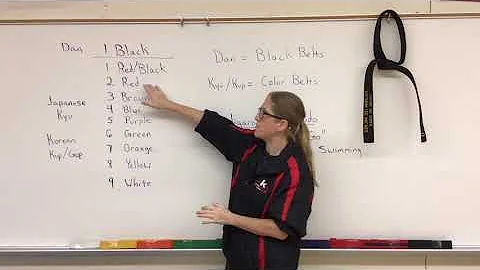 Dan 1 Black
1 Red/Black
2 Red
3 Brown
4 Blue
5 Purple
6 Green
7 Orange
8 Yellow
9 White
Japanese
Kyu
Korean
Kup/Gep
Dan = Black Belts
Kyu/Kup = Color Belts
Swimming